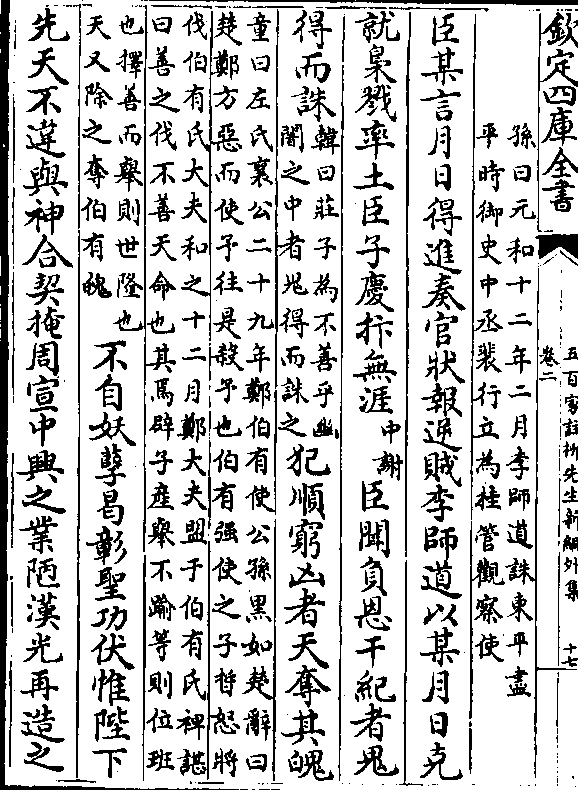 欽定四庫全書
五百家註柳先生新編外集
卷二
十七
孫曰元和十二年二月李師道誅東平盡
平時御史中丞裴行立為桂管觀察使
臣某言月日得進奏官狀報逆賊李師道以某月日克
就梟戮率土臣子慶抃無涯中謝臣聞負恩干紀者鬼
得而誅韓曰莊子為不善乎幽
闇之中者鬼得而誅之犯順窮凶者天奪其魄
童曰左氏襄公二十九年鄭伯有使公孫黑如楚辭曰
楚鄭方惡而使予往是殺予也伯有强使之子晳怒將
伐伯有氏大夫和之十二月鄭大夫盟于伯有氏裨諶
曰善之伐不善天命也其焉辟子產舉不踰等則位班
也擇善而舉則世隆也
天又除之奪伯有魄不自妖孽曷彰聖功伏惟陛下
先天不違與神合契掩周宣中興之業陋漢光再造之